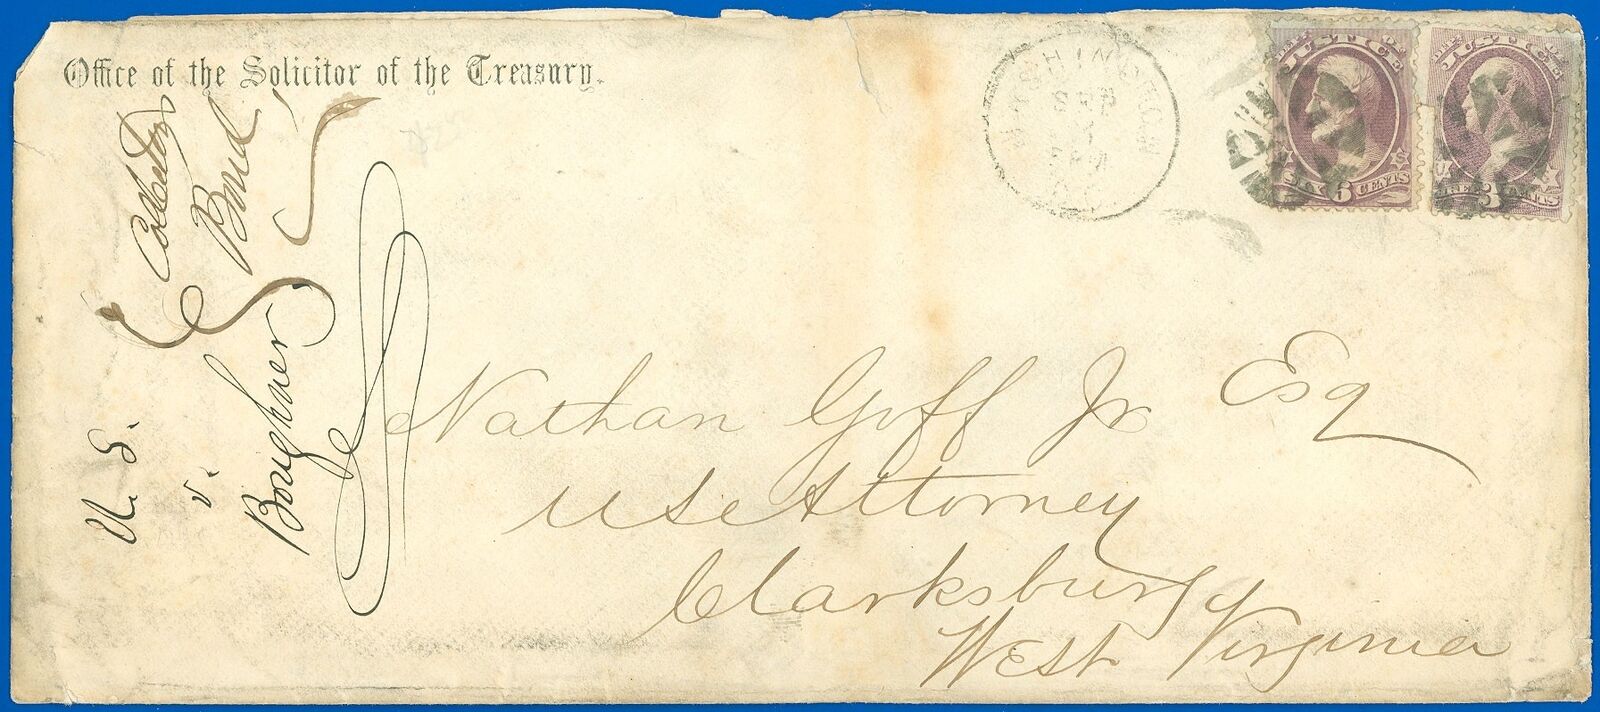 Office of the Solicitor of the Treasury.
WASHINGTON
SEP
DEPT. JUSTICE
SIX 6 CENTS
DEPT. JUSTICE
THREE 3 CENTS
U. S.
v.
Boughner
Collector's
Bond
Nathan Goff Jr Esq
U S Attorney
Clarksburg
West Virginia